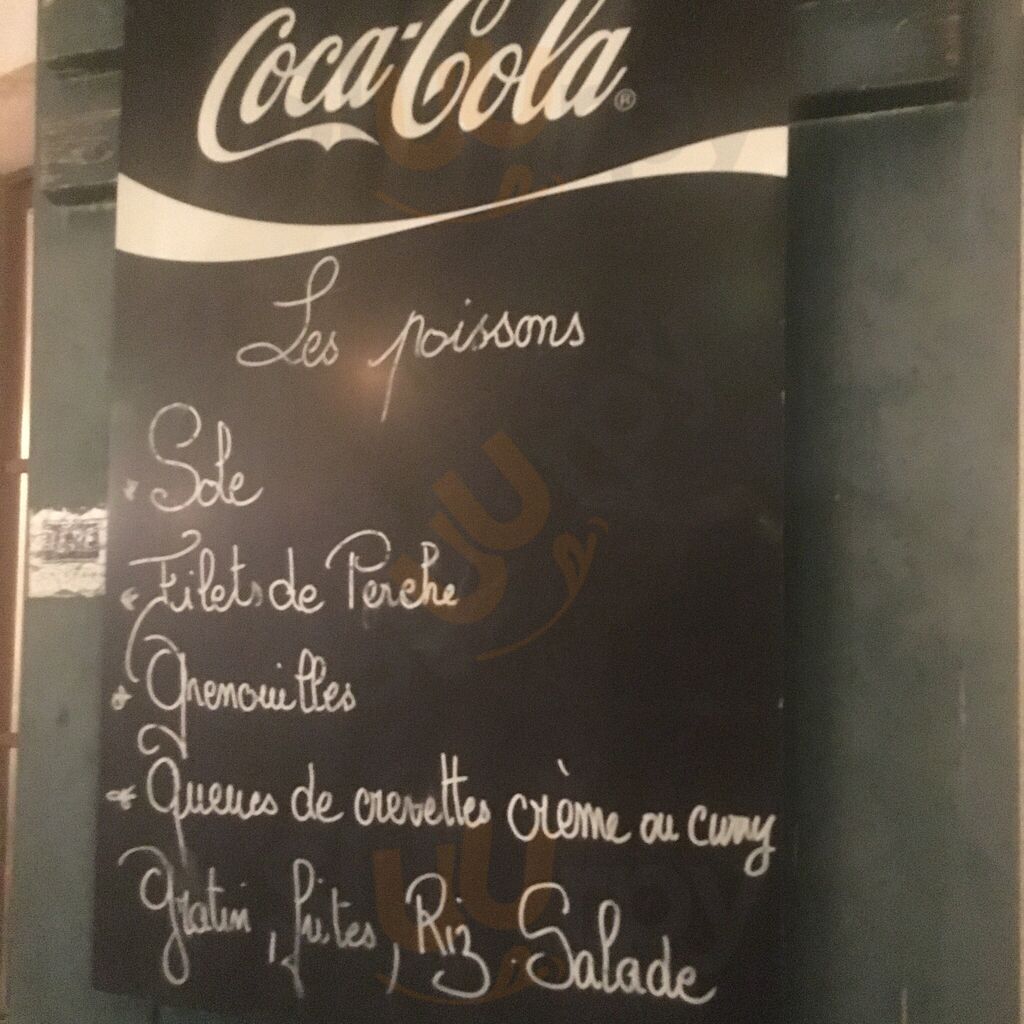 Coca-Cola®
Les poissons
* Sole
* Filets de Perche
* Grenouilles
* Queues de crevettes crème au curry
Gratin, frites, Riz. Salade